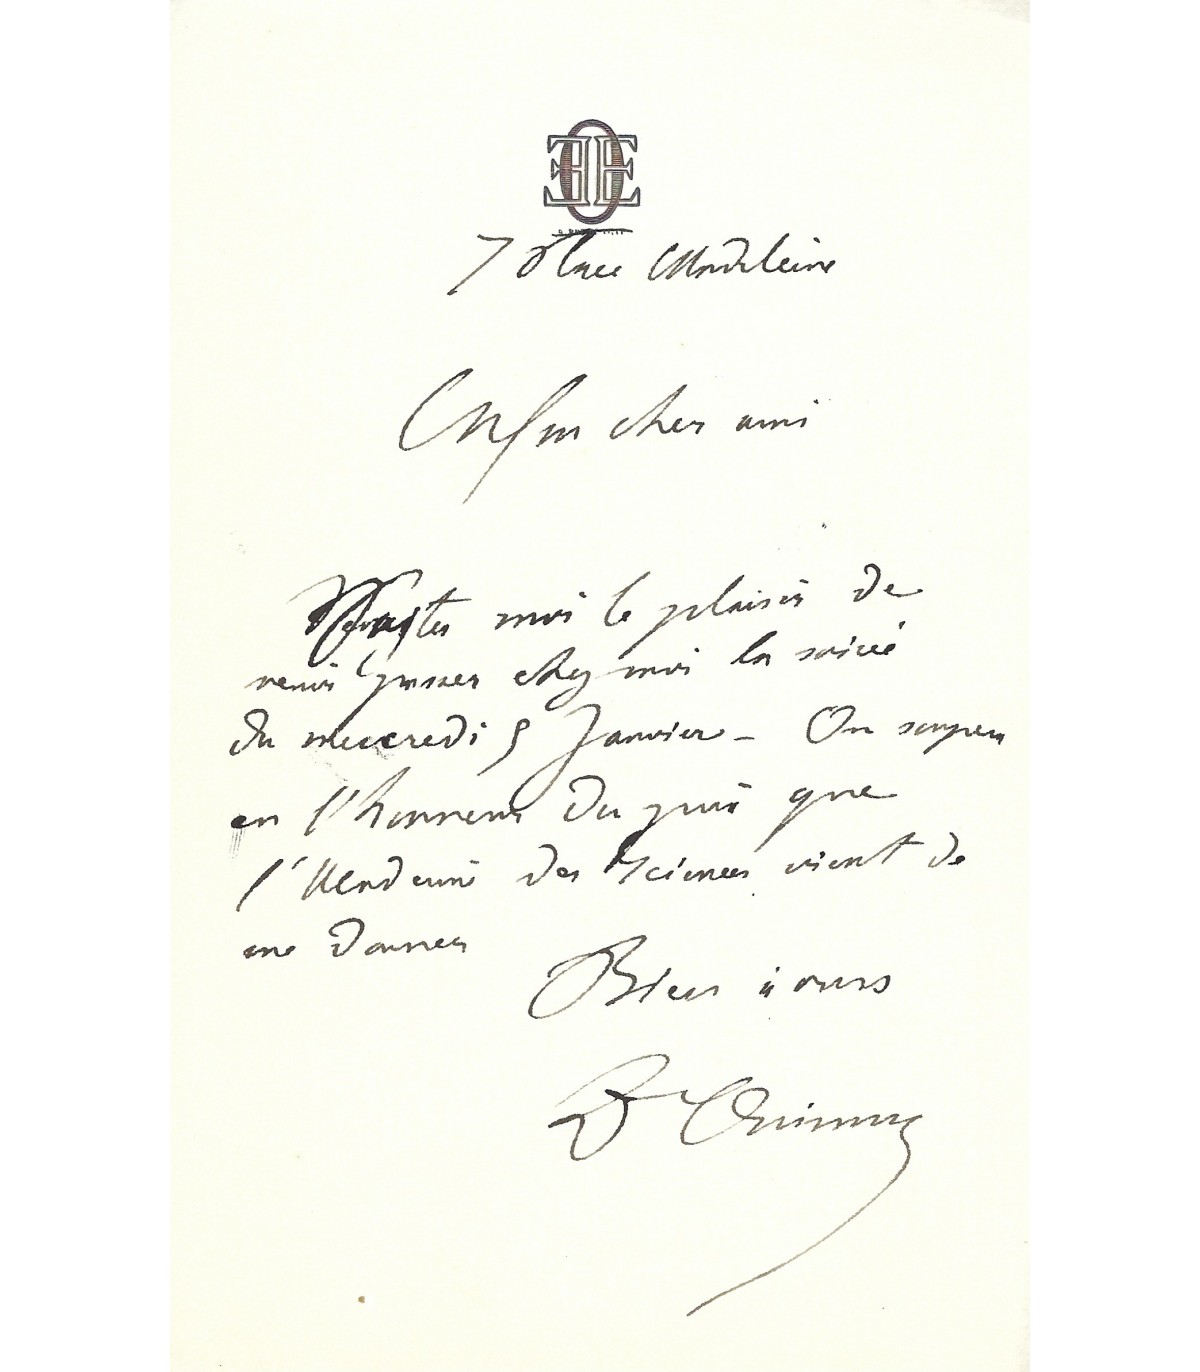 7 Place Madeleine
Enfin cher ami
Faites moi le plaisir de
venir passer chez moi la soirée
du mercredi 5 Janvier – On soupera
en l'honneur du prix que
l'Académie des Sciences vient de
me donner
Bien à vous